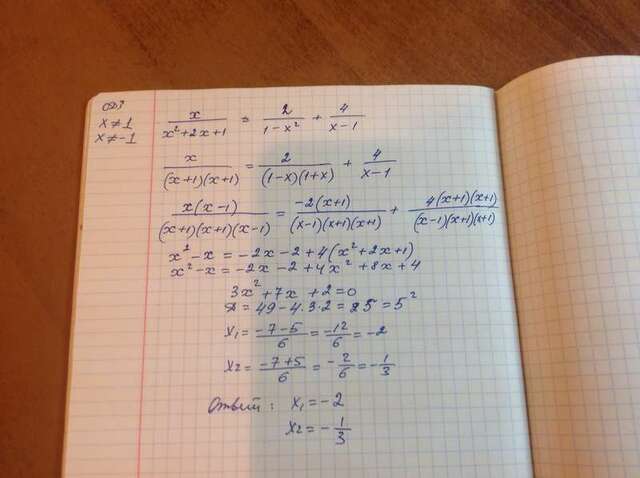 ОДЗ
x ≠ 1
x ≠ -1
x/(x²+2x+1) = 2/(1-x²) + 4/(x-1)
x/((x+1)(x+1)) = 2/((1-x)(1+x)) + 4/(x-1)
x(x-1)/((x+1)(x+1)(x-1)) = -2(x+1)/((x-1)(x+1)(x+1)) + 4(x+1)(x+1)/((x-1)(x+1)(x+1))
x²-x = -2x-2+4(x²+2x+1)
x²-x = -2x-2+4x²+8x+4
3x²+7x+2=0
D = 49-4·3·2 = 25 = 5²
x₁ = (-7-5)/6 = -12/6 = -2
x₂ = (-7+5)/6 = -2/6 = -1/3
Ответ: x₁ = -2
x₂ = -1/3